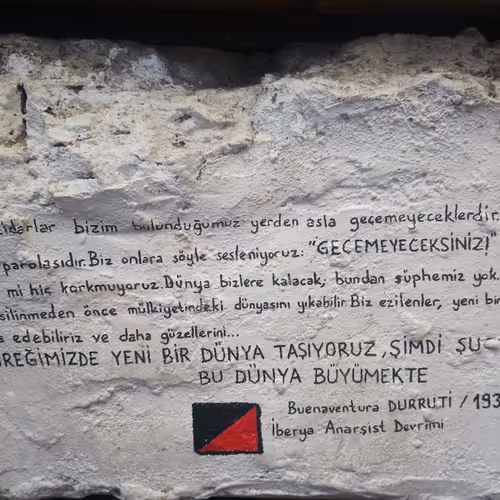 idarlar bizim bulunduğumuz yerden asla geçemeyeceklerdir.
parolasıdır.Biz onlara şöyle sesleniyoruz: "GEÇEMEYECEKSİNİZ!"
mi hiç korkmuyoruz.Dünya bizlere kalacak, bundan şüphemiz yok.
silinmeden önce mülkiyetindeki dünyasını yıkabilir.Biz ezilenler, yeni bir
a edebiliriz ve daha güzellerini...
REĞİMİZDE YENİ BİR DÜNYA TAŞIYORUZ, ŞİMDİ ŞU
BU DÜNYA BÜYÜMEKTE
Buenaventura DURRUTİ / 193
İberya Anarşist Devrimi